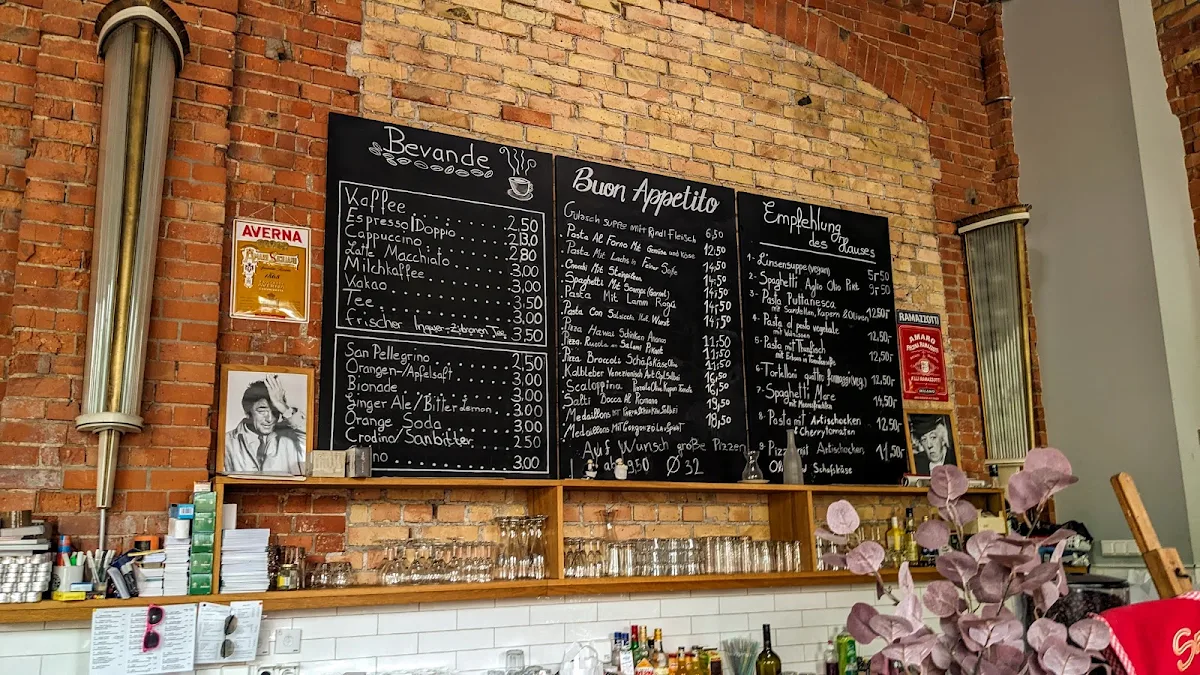 AVERNA
Bevande
Kaffee 2,50
Espresso|Doppio
Cappuccino 2,80
Latte Macchiato 3,00
Milchkaffee 3,00
Kakao
Tee 3,50
frischer Ingwer-Zitronen Tee 3,50
San Pellegrino 2,50
Orangen-/Apfelsaft 3,00
Bionade 3,00
Ginger Ale/Bitter Lemon 3,00
Orange Soda 3,00
Crodino/Sanbitter 2,50
3,00
Buon Appetito
Gulasch suppe mit Rind Fleisch 6,50
Pasta Al Forno Mit Gemüse und Käse 12,50
Pasta Mit Lachs in Feiner Soße 14,50
Gnocchi Mit Steinpilzen 14,50
Spaghetti Mit Scampi 14,50
Pasta Mit Lamm Ragú 14,50
Pasta Con Salsiccia Wurst 14,50
Pizza Hawai Schinken Ananas 11,50
Pizza Rucola Salami Pikant 11,50
Pizza Broccoli Schafskäse 11,50
Kalbleber Venezianisch Art 16,50
Scaloppina 16,50
Salti Bocca Al Romana 19,50
Medaillons Mit 18,50
Medaillons Mit Gorgonzola
Auf Wunsch große Pizzen
ab 9,50 Ø 32
Empfehlung
des Hauses
1- Linsensuppe (vegan) 5,50
2- Spaghetti Aglio Olio 9,50
3- Pasta Puttanesca
mit Sardellen, Kapern & Oliven 12,50
4- Pasta al pesto vegetale 12,50
5- Pasta mit Thunfisch 12,50
6- Tortelloni quattro formaggi (veg.) 12,50
7- Spaghetti Mare 14,50
mit Meeresfrüchten
8- Pasta mit Artischocken 12,50
& Cherrytomaten
9- Pizza mit Artischocken 11,50
Schafskäse
RAMAZZOTTI
AMARO